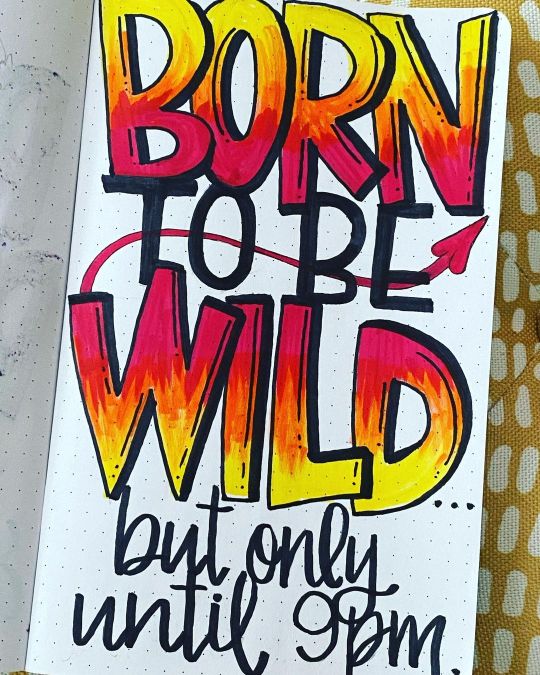 BORN
TO BE
WILD...
but only
until 9pm.